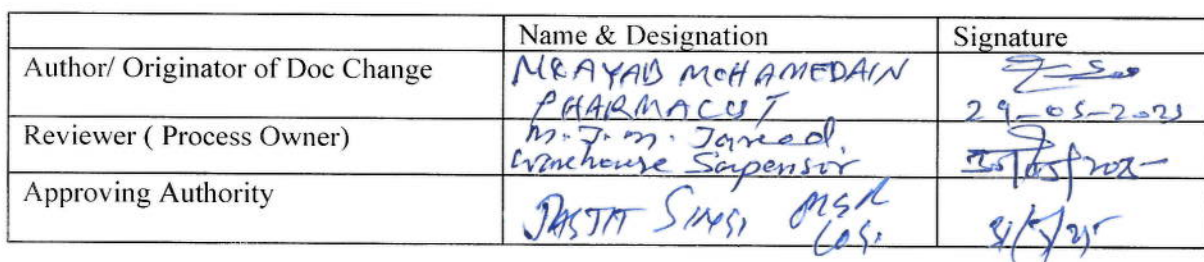 Name & Designation Signature
Author/ Originator of Doc Change MR AYAB MOHAMEDAIN
PHARMACIST 29-05-2025
Reviewer ( Process Owner) M.J.M. Jareed.
Warehouse
Approving Authority MGR
31/5/25